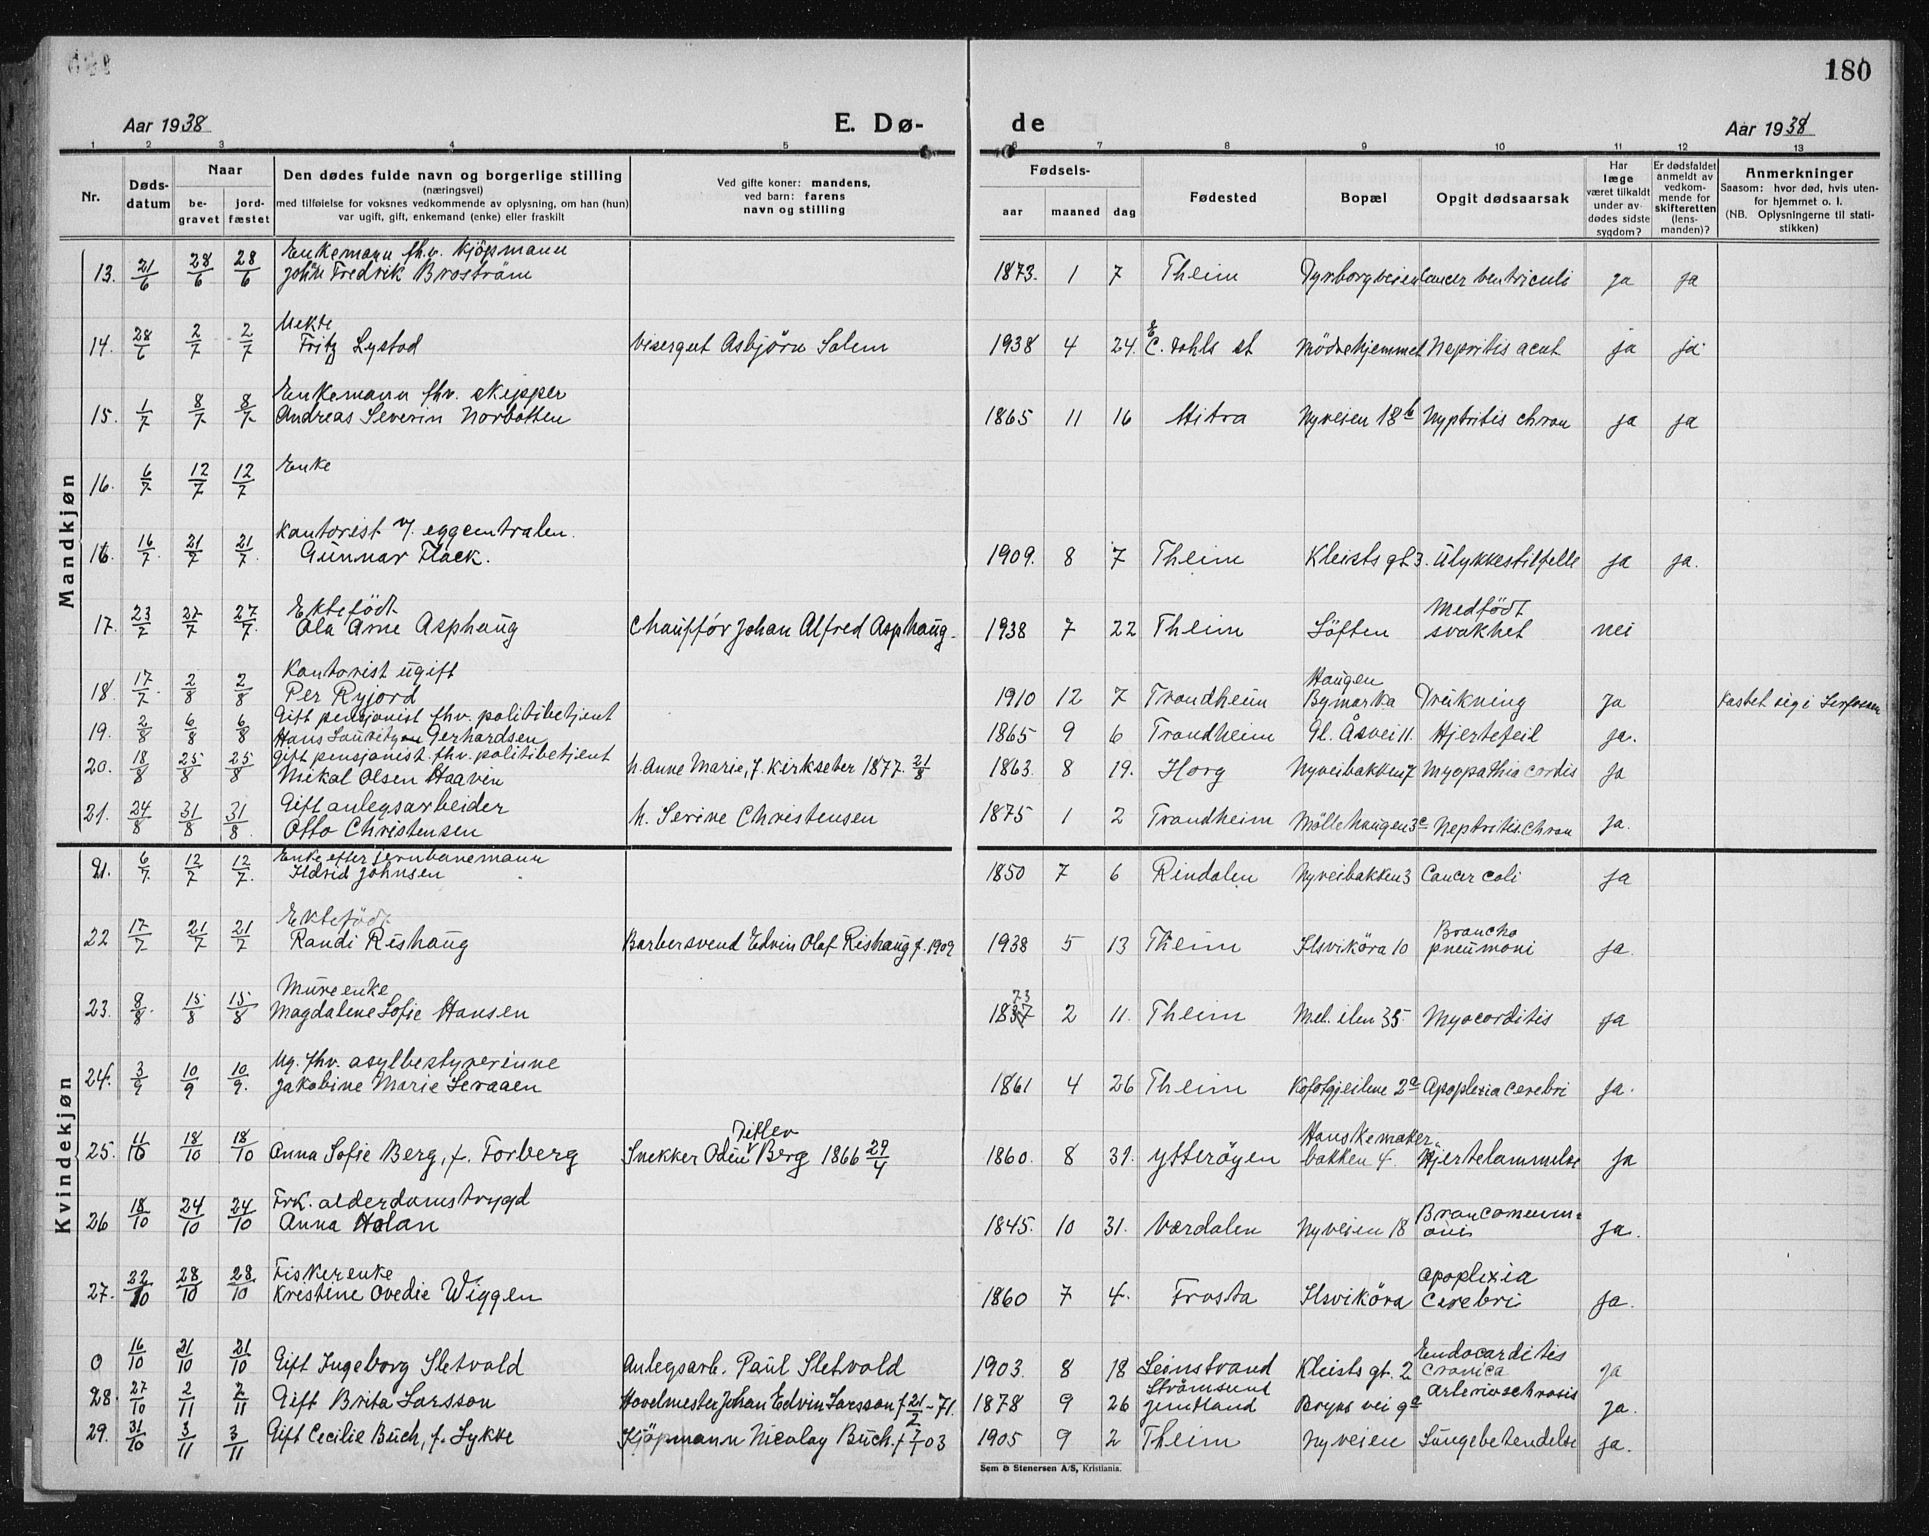 180
Aar 1938
E. Dø-
de
Aar 1938
1 2 3 4 5 6 7 8 9 10 11 12 13
Nr.
Døds-
datum
Naar
be-
gravet
jord-
fæstet
Den dødes fulde navn og borgerlige stilling
(næringsvei)
med tilføielse for voksnes vedkommende av oplysning, om han (hun)
var ugift, gift, enkemand (enke) eller fraskilt
Ved gifte koner: mandens,
ved barn: farens
navn og stilling
Fødsels-
aar maaned dag
Fødested
Bopæl
Opgit dødsaarsak
Har
læge
været tilkaldt
under av-
dødes sidste
sygdom?
Er dødsfaldet
anmeldt av
vedkom-
mende for
skifteretten
(lens-
manden)?
Anmerkninger
Saasom: hvor død, hvis uten-
for hjemmet o. l.
(NB. Oplysningerne til stati-
stikken)
Mandkjøn
Enkemann fhv. kjöpmann
13. 21/6 28/6 28/6 Johan Fredrik Broström 1873. 1 7 Theim Dyrborgveien Cancer ventriculi ja ja
Uekte
14. 28/6 2/7 2/7 Fritz Lystad visergut Asbjörn Solem 1938 4 24. E. C. Dahls st Mödrehjemmet Nepritis acut ja ja
Enkemann fhv. skipper
15. 1/7 8/7 8/7 Andreas Severin Norbotten 1865 11 16 Hitra Nyveien 18b Nyptritis chron ja ja
16. 6/7 12/7 12/7 Enke
Kontorist v/ eggcentralen.
16. 16/7 21/7 21/7 Gunnar Flack. 1909. 8 7 Theim Kleists gt. 3. Ulykkestilfelle ja ja.
Ektefödt Medfödt
17. 23/7 27/7 27/7. Ola Arne Asphaug Chaufför Johan Alfred Asphaug. 1938 7 22 Theim Söften svakhet nei
Kontorist ugift Haugen
18. 17/7. 2/8 2/8 Per Ryjord 1910 12 7 Trondheim Bymarka Drukning Ja Kastet sig i
Gift pensjonist fhv. politibetjent
19. 2/8 6/8 6/8 Hans Lauritz Gerhardsen 1865 9 6 Trondheim Gl. Åsvei 11. Hjertefeil ja.
gift pensjonist. fhv. politibetjent
20. 18/8 25/8 25/8 Mikal Olsen Haaven h. Anne Marie, f. Kirkseter 1877. 21/8 1863. 8 19. Horg Nyveibakken 7 Myopathia cordis ja
Gift anlegsarbeider
21. 24/8 31/8 31/8. Otto Christensen h. Serine Christensen 1875 1 2 Trondheim Möllehaugen 3c Neptritis. chron ja.
Kvindekjøn
Enke efter jernbanemann
21. 6/7 12/7 12/7. Ildrid Johnsen 1850 7 6 Rindalen Nyveibakken 3 Cancer coli ja
Ektefödt Broncho
22 17/7 21/7 21/7 Randi Rishaug Barbersvend Edvin Olaf Rishaug f. 1909 1938 5 13 Theim Ilsviköra 10 pneumoni ja.
Murerenke 73
23. 8/8. 15/8 15/8 Magdalene Sofie Hansen 1837 2 11. Theim Mel. ilen 35. Myocorditis ja
Ug. fhv. asylbestyrerinne
24. 3/9 10/9 10/9. Jakobine Marie 1861 4 26 Theim 2a Apoplexia cerebri ja.
Ditlev Hanskemaker-
25. 11/10 18/10 18/10 Anna Sofie Berg, f. Forberg Snekker Odin Berg 1866 29/4 1860. 8 31. Ytteröyen bakken 4. Hjertelammelse ja
Frk. alderdomstrygd Broncomeum=
26 18/10 24/10 24/10 Anna Holan 1845. 10 31. Værdalen Nyveien 18 onis ja.
Fiskerenke Apoplexia
27. 22/10 28/10 28/10 Kristine Ovedie Wiggen 1860 7 4. Frosta Ilsviköra Cerebri ja.
Endocarditis
0 16/10 21/10 21/10 Gift Ingeborg Sletvold Anlegsarb. Paul Sletvold 1903. 8 18 Leinstrand Kleists gt. 2 Cronica ja
Strömsund
28. 27/10 2/11 2/11 Gift Brita Larsson Hovelmester Johan Edvin Larsson f 21/2-71. 1878 9 26 Jemtland Bryns vei 9a ja.
29. 31/10 3/11 3/11 Gift Cecilie Buch, f. Lykke Kjöpmann Nicolay Buch. 1905 9 2 Theim Nyveien Lungebetendelse ja.
Sem & Stenersen A/S, Kristiania.